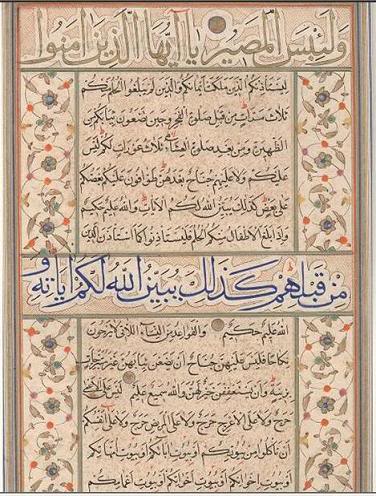 ولبئس المصير يا أيها الذين آمنوا
ليستأذنكم الذين ملكت أيمانكم والذين لم يبلغوا الحلم منكم
ثلاث مرات من قبل صلوة الفجر وحين تضعون ثيابكم من
الظهيرة ومن بعد صلوة العشاء ثلاث عورات لكم ليس
عليكم ولا عليهم جناح بعدهن طوافون عليكم بعضكم
على بعض كذلك يبين الله لكم الآيات والله عليم حكيم
وإذا بلغ الأطفال منكم الحلم فليستأذنوا كما استأذن الذين
من قبلهم كذلك يبين الله لكم آياته و
الله عليم حكيم والقواعد من النساء اللاتي لا يرجون
نكاحا فليس عليهن جناح أن يضعن ثيابهن غير متبرجات
بزينة وأن يستعففن خير لهن والله سميع عليم ليس على الأعمى
حرج ولا على الأعرج حرج ولا على المريض حرج ولا على أنفسكم
أن تأكلوا من بيوتكم أو بيوت آبائكم أو بيوت أمهاتكم
أو بيوت إخوانكم أو بيوت أخواتكم أو بيوت أعمامكم